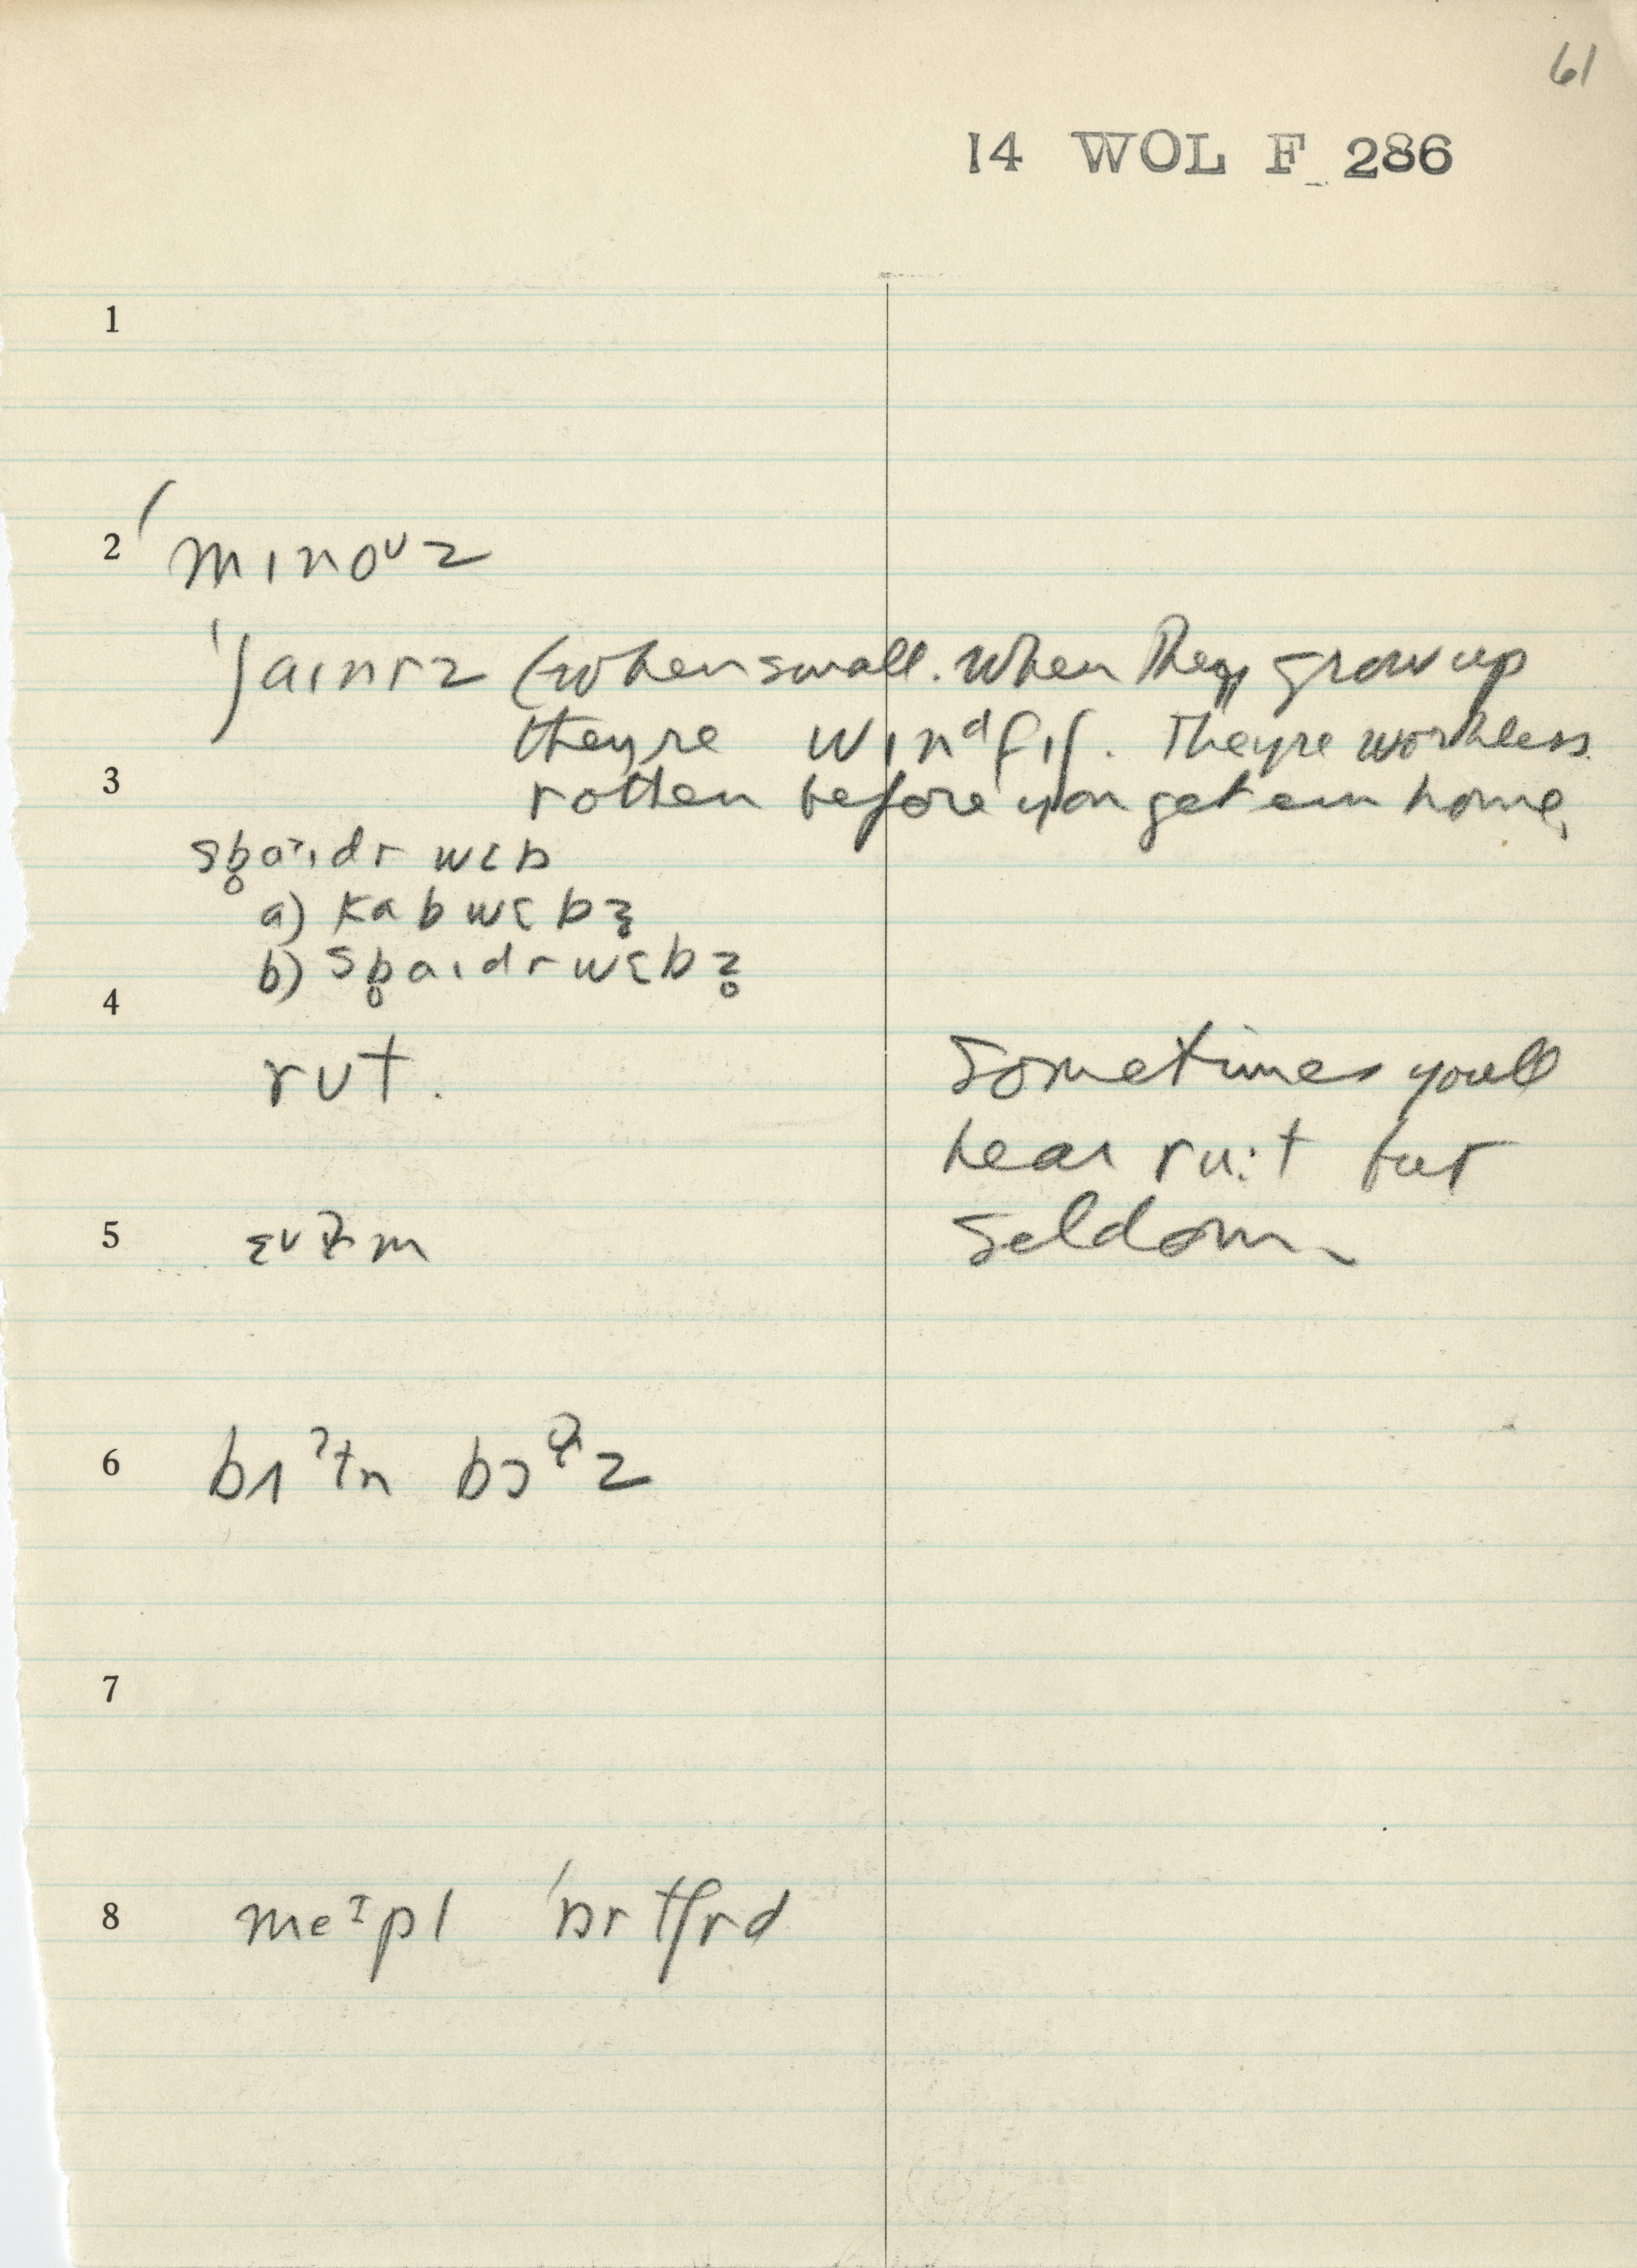 61
14 WOL F 286
1
2 ˈmɪnoᶷz
ˈʃaɪnrz (when small. When they grow up
they're wɪnᵈfɪʃ. They're worthless
3 rotten before you get em home,
sb̥aˀɪdr wɛb
a) kabwɛbz̥
b) sb̥aɪdrwɛbz̥
4
rʊt. Sometimes you'll
hear ru:t but
5 ɛʊm seldom
6 bɪˀtn bɔz
7
8 meᶦpl ˈɒrtʃrd